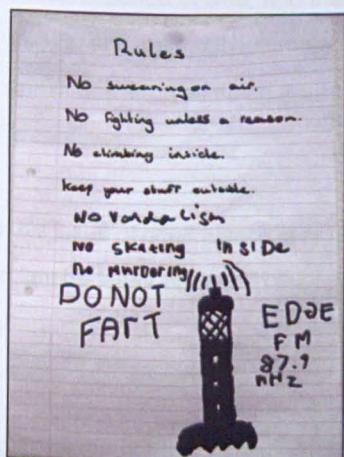 Rules
No swearing on air.
No fighting unless a reason.
No climbing inside.
Keep your stuff outside.
No Vandalism
No skating inside
no murdering
DO NOT
FART
EDGE
FM
87.9
mHz